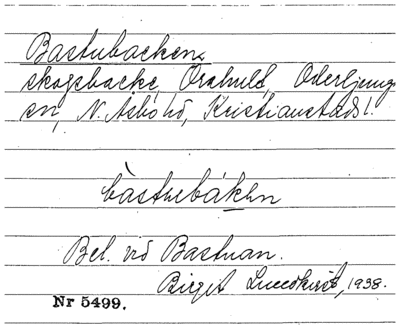 Bastubacken
skogsbacke, Örahult, Oderljunga
sn, N. Åsbo hd, Kristianstads l.
bàstubákən
Bel. vid Bastuan.
Birgit Lundkvist, 1938.
Nr 5499.